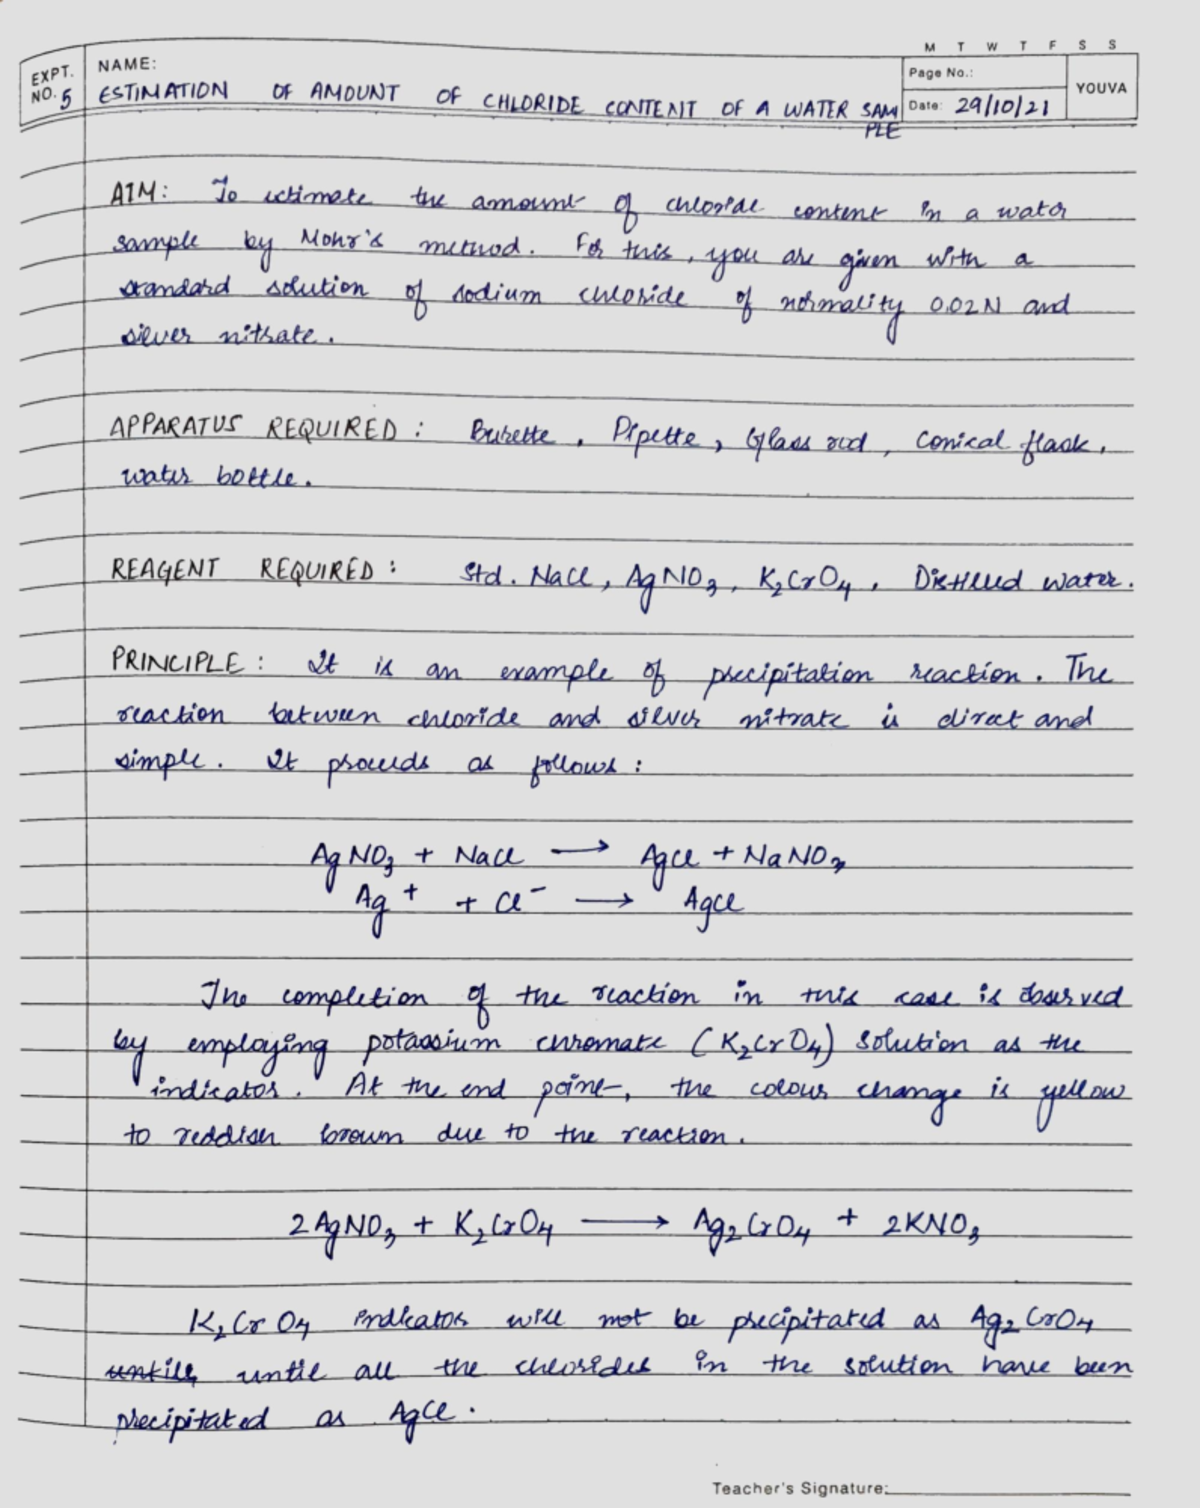 M T W T F S S
EXPT. NO. 5
NAME:
ESTIMATION OF AMOUNT OF CHLORIDE CONTENT OF A WATER SAM
PLE
Page No.:
Date: 29/10/21
YOUVA
AIM: To estimate the amount of chloride content in a water
sample by Mohr's method. For this, you are given with a
standard solution of sodium chloride of normality 0.02N and
silver nitrate.
APPARATUS REQUIRED: Burette, Pipette, Glass rod, Conical flask,
water bottle.
REAGENT REQUIRED: Std. NaCl, AgNO₃, K₂CrO₄, Distilled water.
PRINCIPLE: It is an example of precipitation reaction. The
reaction between chloride and silver nitrate is direct and
simple. It proceeds as follows:
AgNO₃ + NaCl → AgCl + NaNO₃
Ag⁺ + Cl⁻ → AgCl
The completion of the reaction in this case is observed
by employing potassium chromate (K₂CrO₄) solution as the
indicator. At the end point, the colour change is yellow
to reddish brown due to the reaction.
2AgNO₃ + K₂CrO₄ → Ag₂CrO₄ + 2KNO₃
K₂CrO₄ indicator will not be precipitated as Ag₂CrO₄
untill until all the chlorides in the solution have been
precipitated as AgCl.
Teacher's Signature: